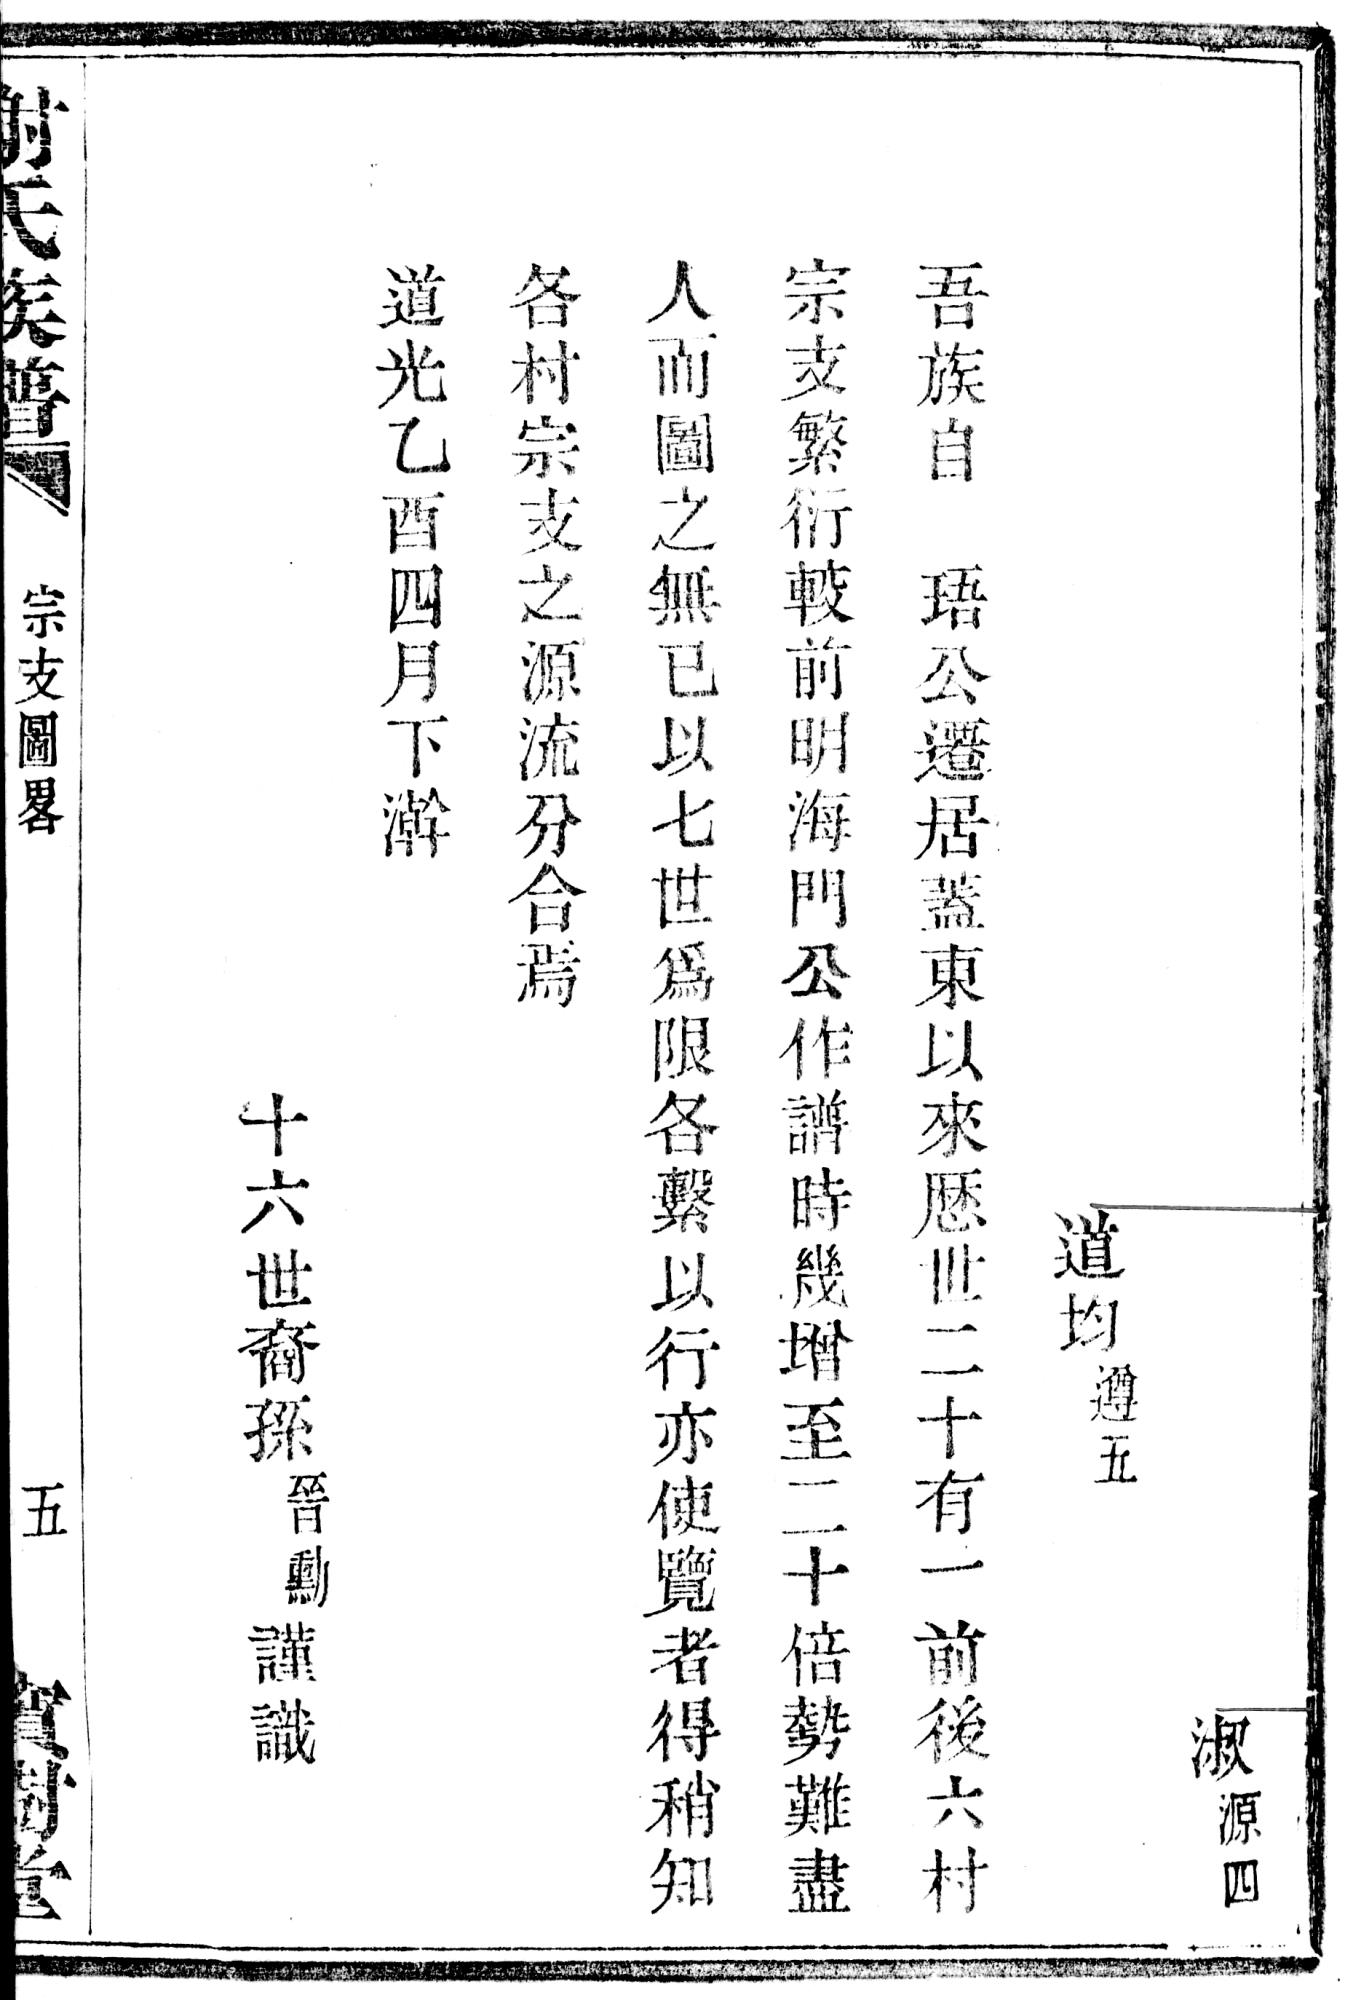 淑源四
道均遵五
吾族自　珸公遷居蓋東以來歷世二十有一前後六村
宗支繁衍較前明海門公作譜時幾增至二十倍勢難盡
人而圖之無已以七世爲限各繫以行亦使覽者得稍知
各村宗支之源流分合焉
道光乙酉四月下澣
十六世裔孫晉勳謹識
謝氏族譜
宗支圖畧
五
寶樹堂